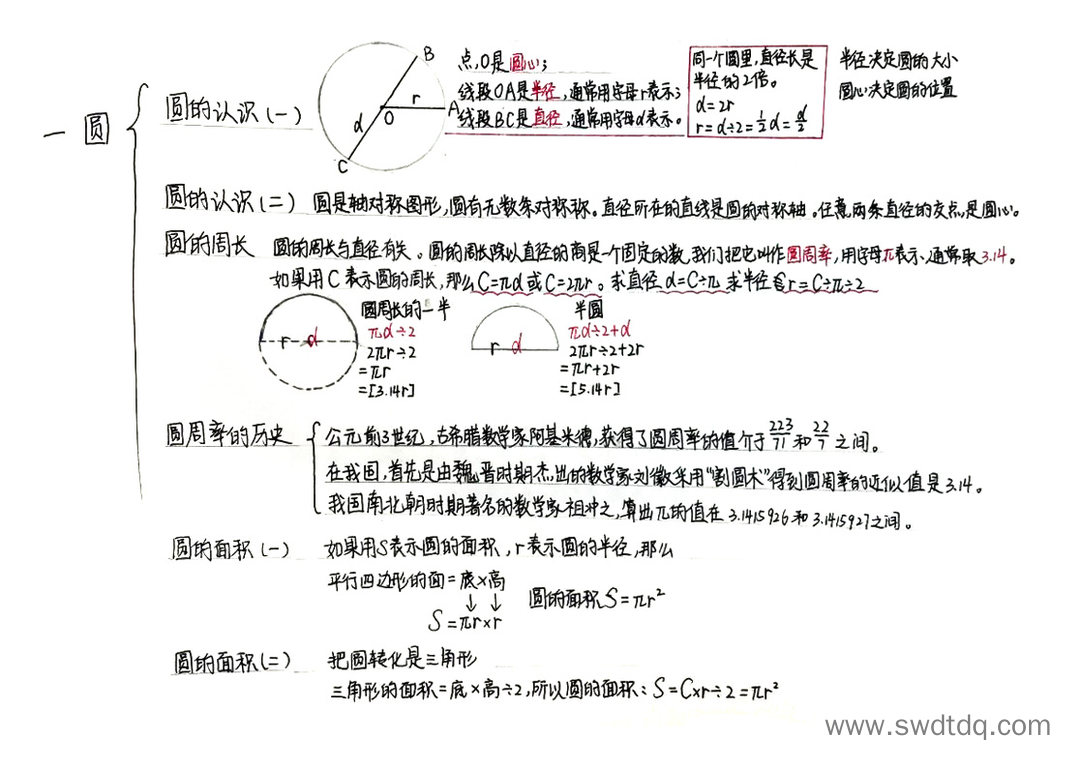 一 圆
圆的认识(一)
B
r
A
O
d
C
点O是圆心；
线段OA是半径，通常用字母r表示；
线段BC是直径，通常用字母d表示。
同一个圆里，直径长是
半径的2倍。
d=2r
r=d÷2=1/2d=d/2
半径决定圆的大小
圆心决定圆的位置
圆的认识(二) 圆是轴对称图形，圆有无数条对称称。直径所在的直线是圆的对称轴。任意两条直径的交点是圆心。
圆的周长 圆的周长与直径有关。圆的周长除以直径的商是一个固定的数，我们把它叫作圆周率，用字母π表示，通常取3.14。
如果用C表示圆的周长，那么C=πd或C=2πr。求直径d=C÷π 求半径r=C÷π÷2
r d
圆周长的一半
πd÷2
2πr÷2
=πr
=[3.14r]
r d
半圆
πd÷2+d
2πr÷2+2r
=πr+2r
=[5.14r]
圆周率的历史
公元前3世纪，古希腊数学家阿基米德，获得了圆周率的值介于223/71和22/7之间。
在我国，首先是由魏晋时期杰出的数学家刘徽采用“割圆术”得到圆周率的近似值是3.14。
我国南北朝时期著名的数学家祖冲之，算出π的值在3.1415926和3.1415927之间。
圆的面积(一) 如果用S表示圆的面积，r表示圆的半径，那么
平行四边形的面=底×高
↓ ↓
S=πr×r
圆的面积S=πr²
圆的面积(二) 把圆转化是三角形
三角形的面积=底×高÷2，所以圆的面积：S=C×r÷2=πr²
www.swdtdq.com